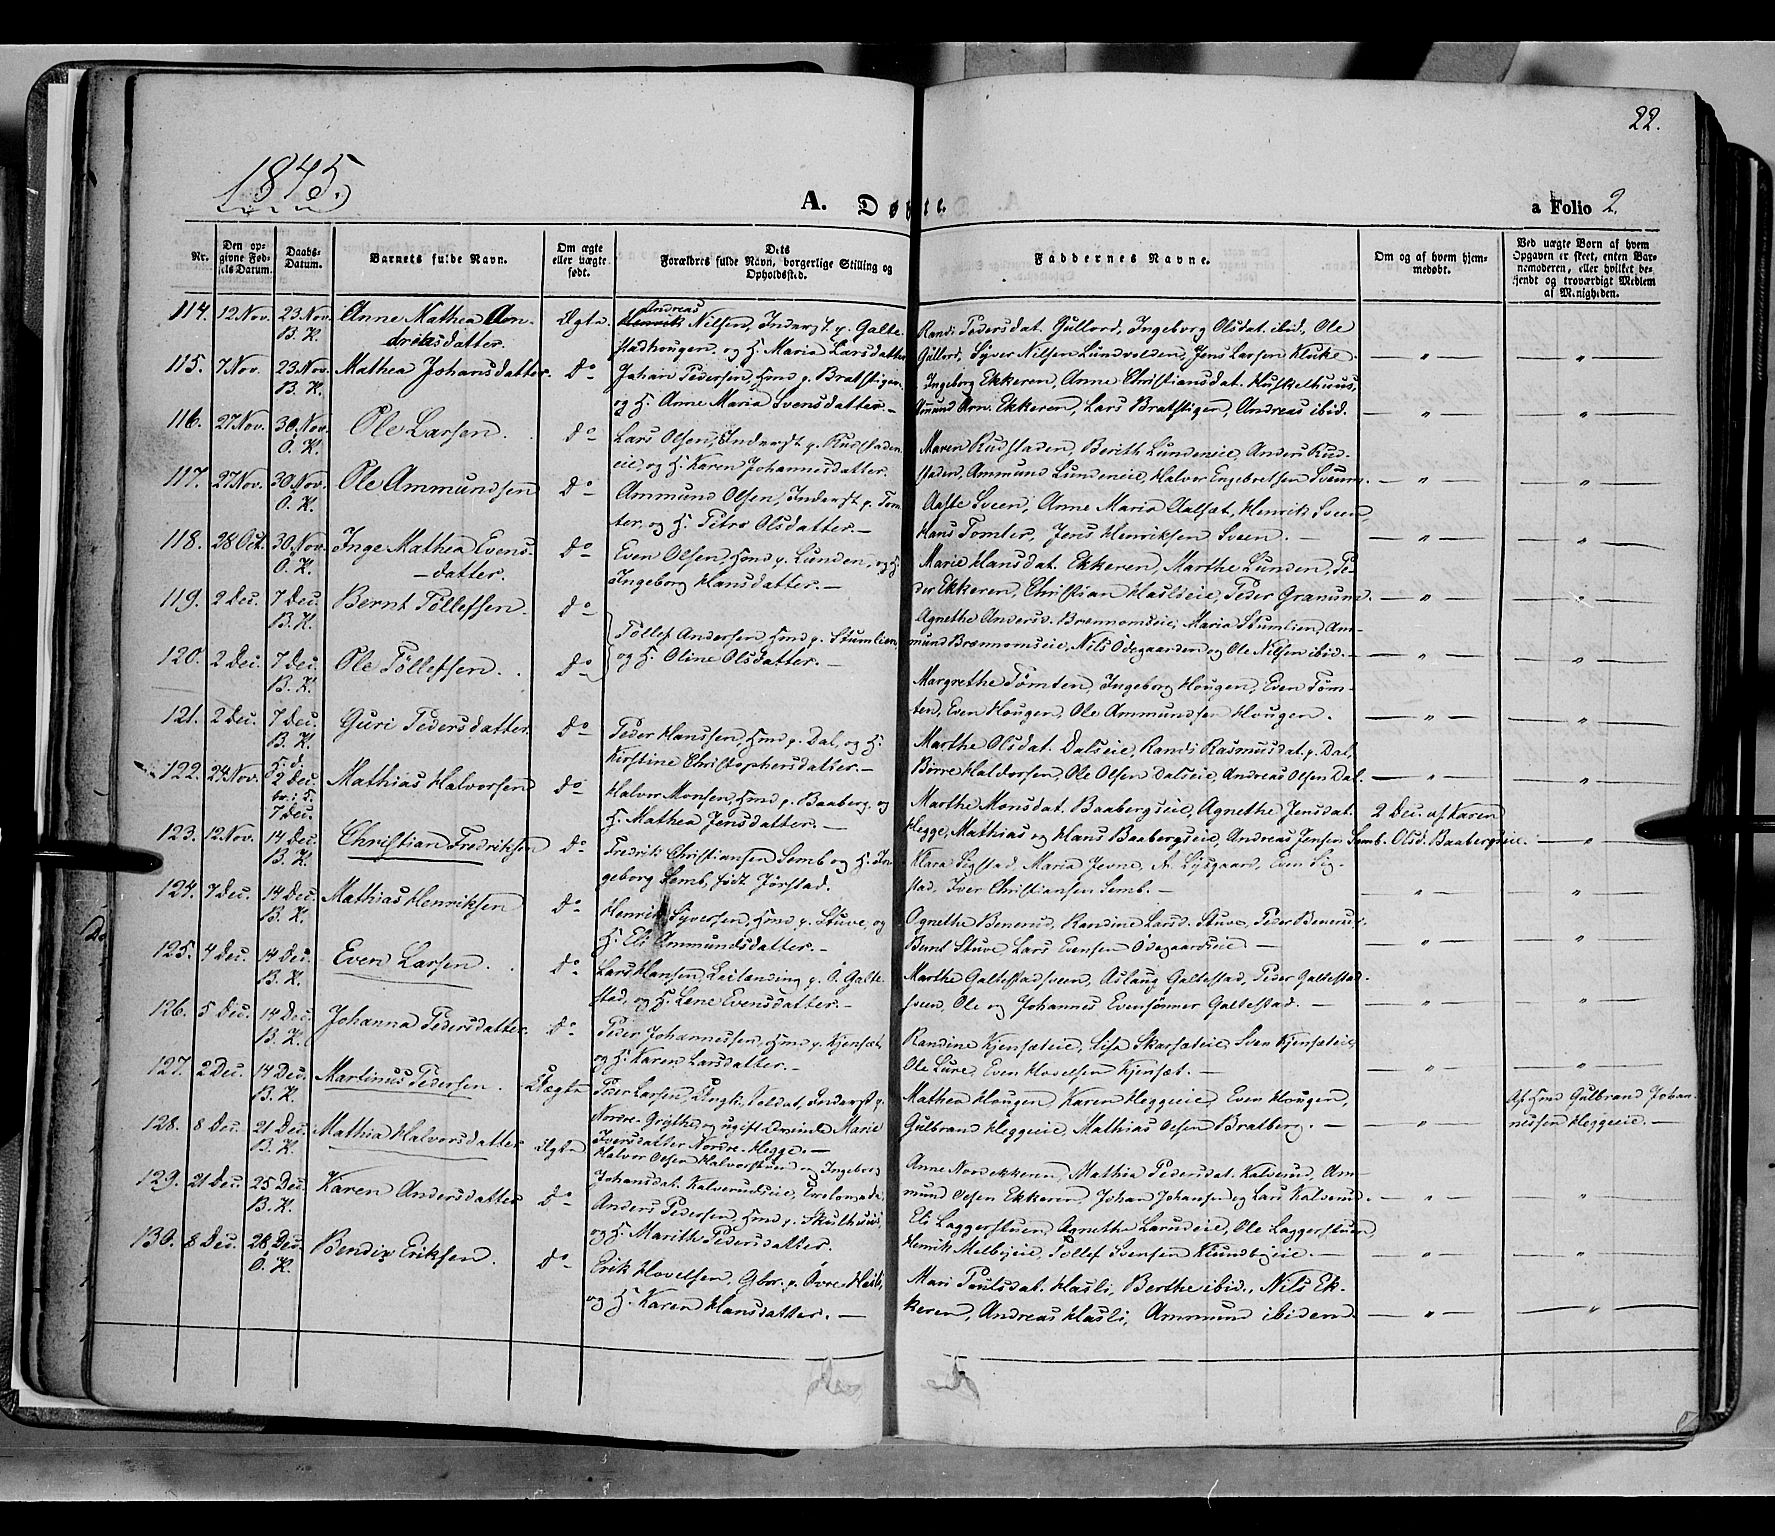 22.
1845.
A. Døbte.
a Folio 2.
Nr. | Den opgivne Fødsels Datum. | Daabs-Datum. | Barnets fulde Navn. | Om ægte eller uægte født. | Dets Forældres fulde Navn, borgerlige Stilling og Opholdssted. | Faddernes Navne. | Om og af hvem hjemmedøbt. | Ved uægte Børn af hvem Opgaven er skeet, enten Barnemoderen, eller hvilket bekjendt og troværdigt Medlem af Menigheden.
114. 12 Nov. 23 Nov. B. K. Anne Mathea Andreasdatter. Ægte Andreas Nilsen, Inderst p. Galtestadhougen, og H. Maria Larsdatter Randi Pedersdat. Gullord, Ingeborg Olsdat. ibid, Ole
Gullord, Syver Nilsen Lundvelden, Jens Larsen Kluke. — „ — — „ —
115. 7 Nov. 23 Nov. B. K. Mathea Johansdatter. Do Johan Pedersen, Hmd p. Bratstigen, og H. Anne Maria Svensdatter. — Ingeborg Ekkeren, Anne Christiansdat. Huskelhuus,
Amund Am. Ekkeren, Lars Bratstigen, Andreas ibid. — „ — — „ —
116. 27 Nov. 30 Nov. O. K. Ole Larsen. Do Lars Olsen, Inderst p. Rudstadeneie, og H. Karen Johannesdatter. Maren Rudstaden, Berith Lundeneie, Anders Rud-
staden, Ammund Lundeneie, Halvor Engebretsen Sveum — „ — — „ —
117. 27 Nov. 30 Nov. O. K. Ole Ammundsen Do Ammund Olsen, Inderst p. Tomter, og H. Petro Olsdatter. — Aaste Sveen, Anne Maria Aalsæt, Henrik Sveen,
Hans Tomter, Jens Henriksen Sveen. — — „ — — „ —
118. 28 Oct. 30 Nov. O. K. Inge Mathea Evens-
datter. Do Even Olsen, Hmd p. Lunden, og H. Ingeborg Hansdatter. — Marie Hansdat. Ekkeren, Marthe Lunden, Pe-
der Ekkeren, Christian Haslieie, Peder Granum. — „ — — „ —
119. 2 Dec. 7 Dec. B. K. Bernt Tollefsen. Do Tollef Andersen, Hmd p. Stumlien, Agnethe Andersd. Brennomseie, Maria Stumlien, Am-
mund Brennomseie, Nils Odegaarden og Ole Nilsen ibid. — — „ — — „ —
120. 2 Dec. 7 Dec. B. K. Ole Tollefsen. Do og H. Oline Olsdatter. — Margrethe Tømten, Ingeborg Hougen, Even Tøm-
ten, Even Hougen, Ole Ammundsen Hougen. — „ — — „ —
121. 2 Dec. 7 Dec. B. K. Guri Pedersdatter Do Peder Hanssen, Hmd p. Dal, og H. Kirstine Christophersdatter. — Marthe Olsdat. Dalseie, Randi Rasmusdat. p. Dal,
Børre Haldorsen, Ole Olsen Dalseie, Andreas Olsen Dal. — „ — — „ —
122. 24 Nov. H. d. 2 Dec. 7 Dec. Mathias Halvorsen Do Halvor Monsen, Hmd p. Baaberg, og H. Mathea Jensdatter. — Marthe Monsdat. Baabergseie, Agnethe Jensdat.
Hegge, Mathias og Hans Baabergseie, Andreas Jensen Semb. 2 Dec. af Karen Olsd. Baabergseie. — „ —
123. 12 Nov. 14 Dec. B. K. Christian Fredriksen Do Fredrik Christiansen Semb og H. Ingeborg Semb, født Jørstad. Klara Sigstad, Maria Jevne, A. Lysgaard, Even Sig-
stad, Iver Christiansen Semb. — „ — „ —
124. 7 Dec. 14 Dec. B. K. Mathias Henriksen Do Henrik Syversen, Hmd p. Stuve, og H. Eli Ammundsdatter. — Agnethe Benerud, Randine Larsd. Stuve, Peder Benerud,
Bernt Stuve, Lars Evensen Odegaardseie — — „ — — „ —
125. 4 Dec. 14 Dec. B. K. Even Larsen. Do Lars Hansen, Leilænding p. Ö. Galtestad, og H. Lene Evensdatter. — Marthe Galtestadsveen, Aslaug Galtestad, Peder Galtestad-
sveen, Ole og Johannes Evensønner Galtestad. — — „ — — „ —
126. 5 Dec. 14 Dec. B. K. Johanna Pedersdatter. Do Peder Johannessen, Hmd p. Kjensæt, og H. Karen Larsdatter. — Randine Kjensæteie, Lisa Skarsæteie, Sven Kjensæteie,
Ole Lure, Even Hovelsen Kjensæt. — — „ — — „ —
127. 2 Dec. 14 Dec. B. K. Martinus Pedersen. Uægte Peder Larsen, Soldat, Inderst p. Nordre-Grythe og ugift Marie Iversdatter Nordre-Hegge. — Mathea Hougen, Karen Heggeeie, Even Hougen,
Gulbrand Heggeeie, Mathias Olsen Bratberg. — — „ — Af Hmd Gulbrand Johannessen Heggeeie. —
128. 8 Dec. 21 Dec. B. K. Mathia Halvorsdatter Ægte Halvor Olsen Halvorstuen og Ingeborg Johansdat. Kalverudseie, Anne Nordekkeren, Mathia Pedersdat. Kalverud, Am-
mund Olsen Ekkeren, Johan Johansen og Lars Kalverud. — „ — — „ —
129. 21 Dec. 25 Dec. B. K. Karen Andersdatter Do Anders Pedersen, Hmd p. Skulhuus, og H. Marithe Pedersdatter. Eli Laggerstuen, Agnethe Larudeie, Ole Laggerstuen,
Henrik Melbyeie, Tollef Svensen Klundbyeie. — — „ — — „ —
130. 8 Dec. 28 Dec. O. K. Bendix Eriksen. Do Erik Hovelsen, Gbr. p. Övre-Hasli, og H. Karen Hansdatter. — Mari Paulsdat. Hasli, Berthe ibid., Nils Ek-
keren, Andreas Hasli, Ammund ibidem — „ — — „ —